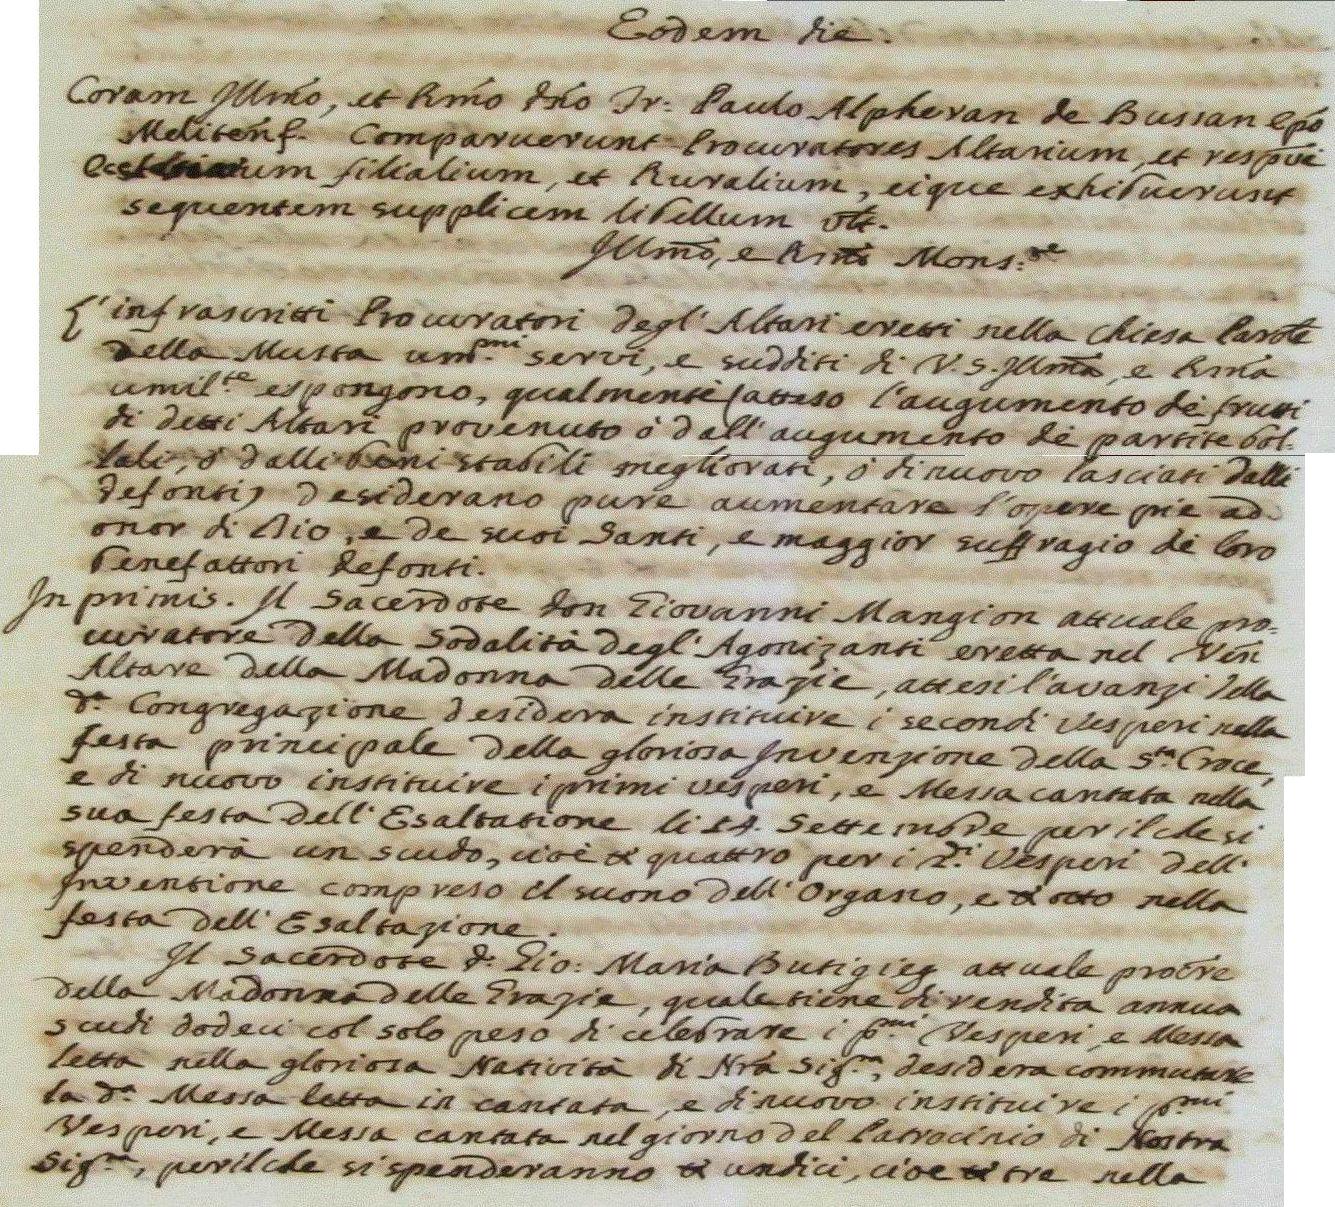 Eodem die.
Coram Illmo, et Rmo Dno Fr: Paulo Alpheran de Bussan Epo
Melitensi. Comparuerunt Procuratores Altarium, et respve
Ecclesiarum filialium, et Ruralium, eique exhibuerunt
sequentem supplicem libellum vtt.
Illmo, e Rmo Mons:re
L'infrascritti Procuratori degl'Altari eretti nella Chiesa Parole
della Musta umi.mi servi, e sudditi di V.S. Illma, e Rma
umil.te espongono, qualmente (atteso l'augumento de frutti
di detti Altari provenuto ò dall'augumento de partite bol-
lali, ò dalli beni stabili megliorati, ò di nuovo lasciati dalli
defonti) desiderano pure aumentare l'opere pie ad
onor di Dio, e de suoi Santi, e maggior suffragio de loro
benefattori defonti.
In primis. Il Sacerdote Don Giovanni Mangion attuale pro=
curatore della Sodalità degl'Agonizanti eretta nel Ven
Altare della Madonna delle Grazie, attesi l'avanzi della
d.a Congregazione desidera instituire i secondi Vesperi nella
festa principale della gloriosa Invenzione della S.ta Croce,
e di nuovo instituire i primi vesperi, e Messa cantata nella
sua festa dell'Esaltatione li 14. Settembre per il che si
spenderà un scudo, cioè tt quattro per i 2.di Vesperi dell'
Inventione compreso il suono dell'Organo, e tt otto nella
festa dell'Esaltazione.
Il Sacerdote D. Gio: Maria Butigieg attuale procre
della Madonna delle Grazie, quale tiene di rendita annua
scudi dodeci col solo peso di celebrare i p.mi Vesperi, e Messa
letta nella gloriosa Natività di Nra Sig.ra, desidera commutare
la d.a Messa letta in cantata, e di nuovo instituire i p.mi
Vesperi, e Messa cantata nel giorno del Patrocinio di Nostra
Sig.ra, per il che si spenderanno tt undici, cioè tt tre nella